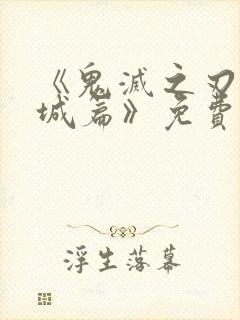 《鬼滅之刃
城篇》免費
浮生落幕